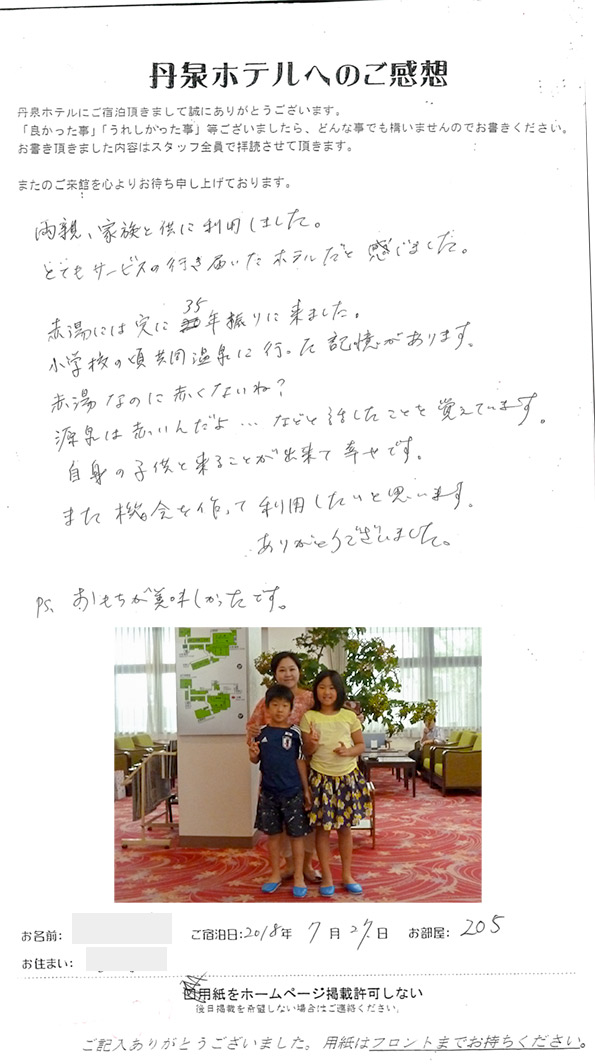 丹泉ホテルへのご感想
丹泉ホテルにご宿泊頂きまして誠にありがとうございます。
「良かった事」「うれしかった事」等ございましたら、どんな事でも構いませんのでお書きください。
お書き頂きました内容はスタッフ全員で拝読させて頂きます。
またのご来館を心よりお待ち申し上げております。
両親、家族と供に利用しました。
とてもサービスの行き届いたホテルだと感じました。
赤湯には実に35年振りに来ました。
小学校の頃共同温泉に行った記憶があります。
赤湯なのに赤くないね?
源泉は赤いんだよ…などと話したことを覚えています。
自身の子供と来ることが出来て幸せです。
また機会を作って利用したいと思います。
ありがとうございました。
PS、おもちが美味しかったです。
お名前: ご宿泊日:2018年 7月27日 お部屋: 205
お住まい:
用紙をホームページ掲載許可しない
後日掲載を希望しない場合はご連絡ください。
ご記入ありがとうございました。用紙はフロントまでお持ちください。